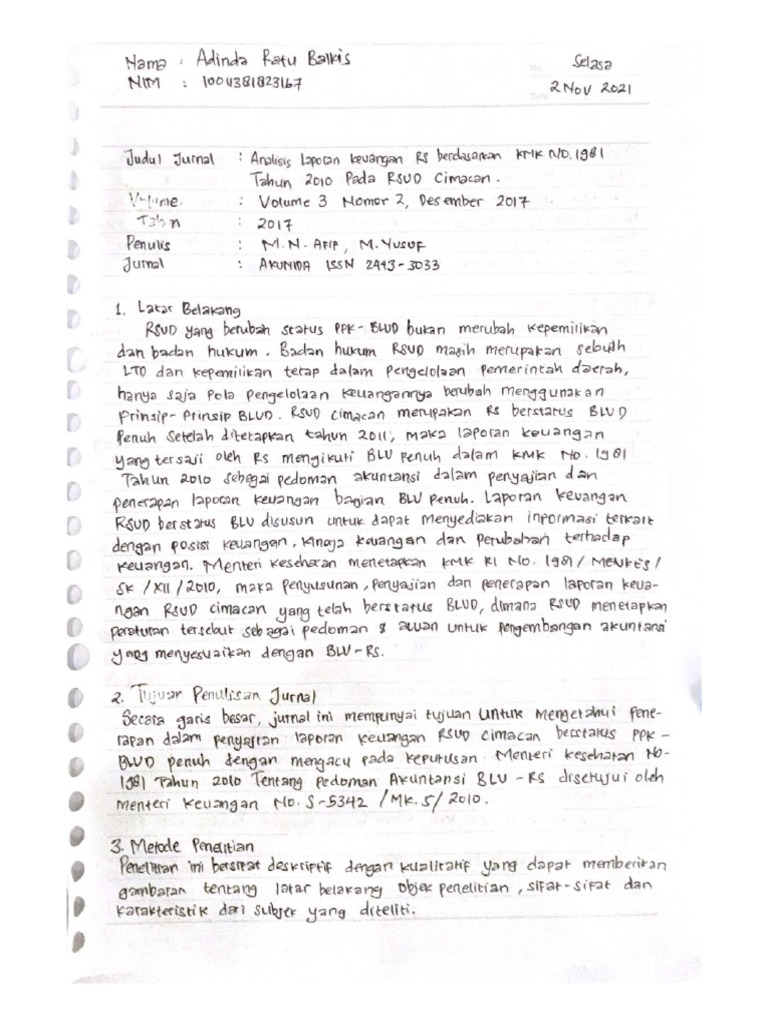 Nama : Adinda Ratu Balkis
NIM : 1004381823167
No.
Selasa
Date
2 Nov 2021
Judul Jurnal : Analisis Laporan Keuangan RS berdasarkan KMK NO. 1981
Tahun 2010 Pada RSUD Cimacan.
Volume : Volume 3 Nomor 2, Desember 2017
Tahun : 2017
Penulis : M.N. Afif, M. Yusuf
Jurnal : AKUNIDA ISSN 2443-3033
1. Latar Belakang
RSUD yang berubah status PPK-BLUD bukan merubah kepemilikan
dan badan hukum. Badan hukum RSUD masih merupakan sebuah
LTD dan kepemilikan tetap dalam pengelolaan pemerintah daerah,
hanya saja pola pengelolaan keuangannya berubah menggunakan
Prinsip-Prinsip BLUD. RSUD cimacan merupakan RS berstatus BLUD
Penuh Setelah ditetapkan tahun 2011, maka laporan keuangan
yang tersaji oleh RS mengikuti BLU penuh dalam KMK No. 1981
Tahun 2010 sebagai pedoman akuntansi dalam penyajian dan
penerapan laporan keuangan bagian BLU penuh. Laporan keuangan
RSUD berstatus BLU disusun untuk dapat menyediakan informasi terkait
dengan posisi keuangan, kinerja keuangan dan perubahan terhadap
keuangan. Menteri kesehatan menetapkan KMK RI NO. 1981/MENKES/
SK/XII/2010, maka penyusunan, penyajian dan penerapan laporan keua-
ngan RSUD cimacan yang telah berstatus BLUD, dimana RSUD menetapkan
peraturan tersebut sebagai pedoman & acuan untuk pengembangan akuntansi
yang menyesuaikan dengan BLU-RS.
2. Tujuan Penulisan Jurnal
Secara garis besar, jurnal ini mempunyai tujuan untuk mengetahui pene-
rapan dalam penyajian laporan keuangan RSUD cimacan berstatus PPK-
BLUD penuh dengan mengacu pada keputusan Menteri kesehatan No-
1981 Tahun 2010 Tentang Pedoman Akuntansi BLU-RS disetujui oleh
Menteri keuangan No. S-5342 /MK.5/2010.
3. Metode Penelitian
Penelitian ini bersifat deskriptif dengan kualitatif yang dapat memberikan
gambaran tentang latar belakang objek penelitian, sifat-sifat dan
karakteristik dari subjek yang diteliti.